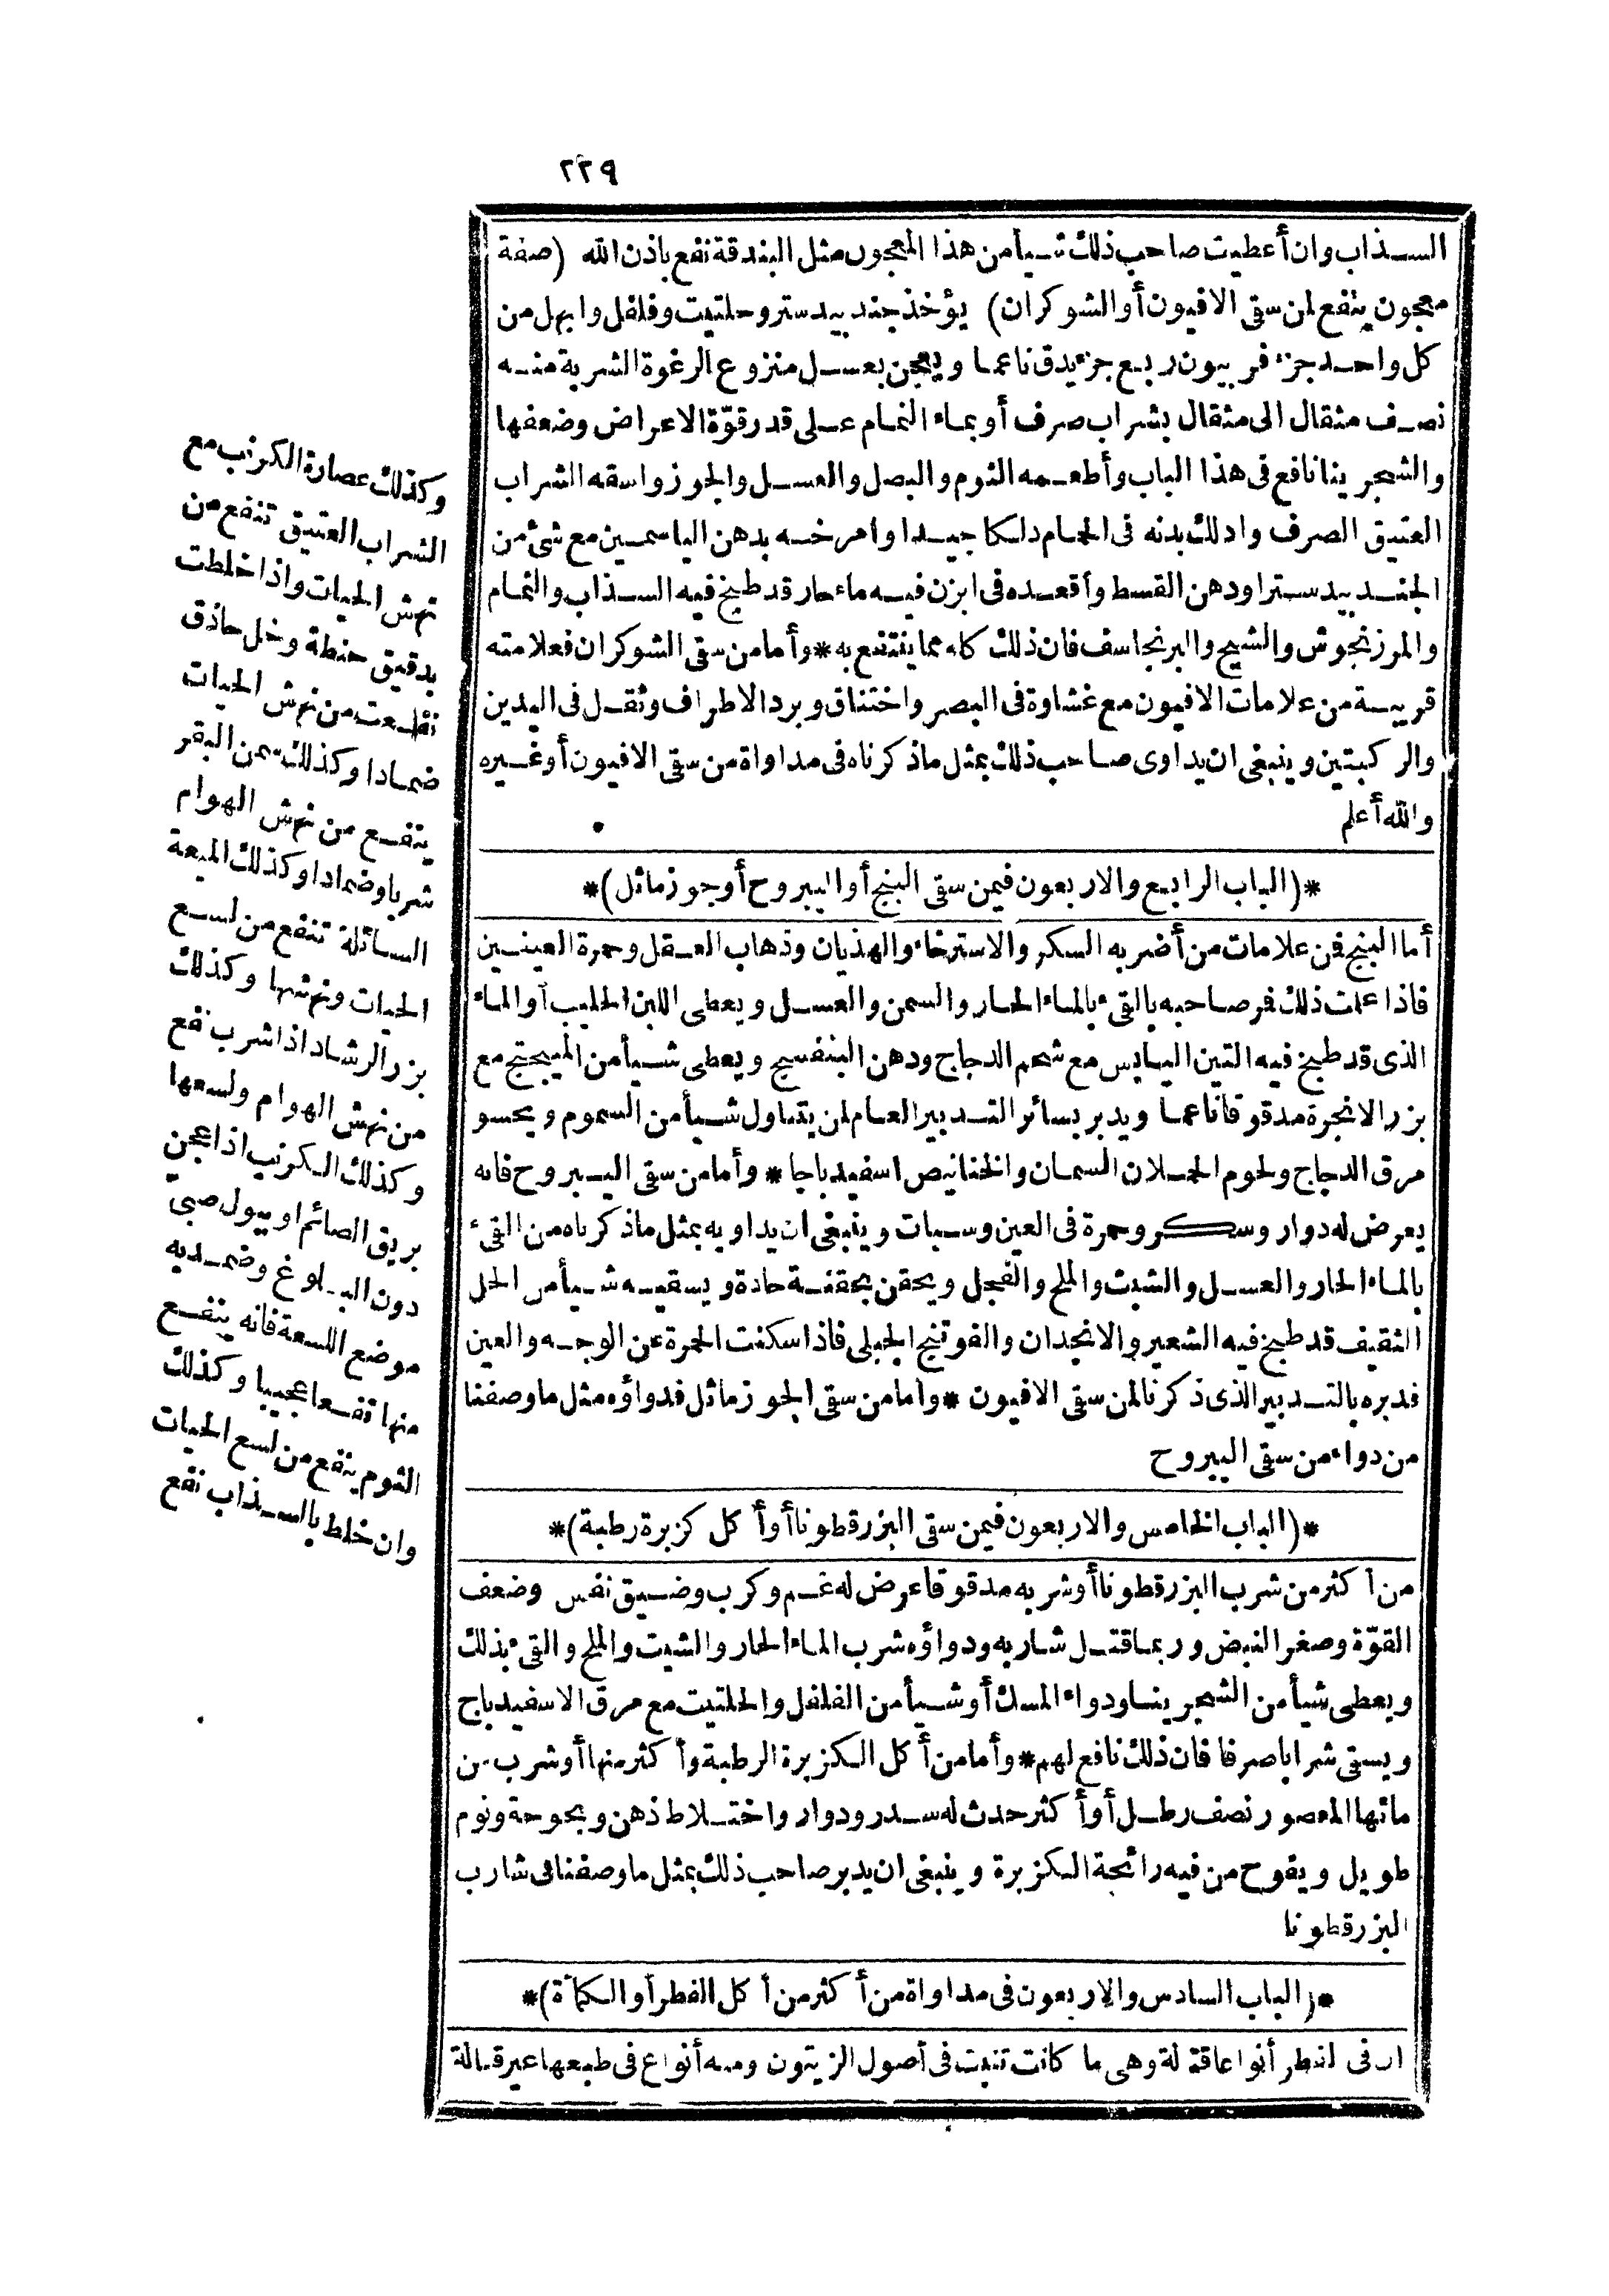 ٢٢٩
السذاب وان أعطيت صاحب ذلك شيأ من هذا المعجون مثل البندقة نفع باذن الله (صفة
معجون ينفع لمن سقى الافيون أو الشوكران) يؤخذ جند بيدستر وحلتيت وفلفل وابهل من
كل واحد جزء فربيون ربع جزء يدق ناعما ويعجن بعسل منزوع الرغوة الشربة منه
نصف مثقال الى مثقال بشراب صرف أو بماء النمام على قدر قوّة الاعراض وضعفها
والشجرينا نافع فى هذا الباب وأطعمه الثوم والبصل والعسل والجوز واسقه الشراب
العتيق الصرف وادلك بدنه فى الحمام دلكا جيدا وامرخه بدهن الياسمين مع شئ من
الجند بيدستر اودهن القسط وأقعده فى ابزن فيه ماء حار قد طبخ فيه السذاب والنمام
والمرزنجوش والشيح والبرنجاسف فان ذلك كله مما ينتفع به * وأما من سقى الشوكران فعلامته
قريبة من علامات الافيون مع غشاوة فى البصر واختناق وبرد الاطراف وثقل فى اليدين
والركبتين وينبغى ان يداوى صاحب ذلك بمثل ما ذكرناه فى مداواة من سقى الافيون أو غيره
والله أعلم
*(الباب الرابع والاربعون فيمن سقى البنج أو اليبروح أو جوز ماثل)*
أما البنج فمن علامات من أضر به السكر والاسترخاء والهذيان وذهاب العقل وحمرة العينين
فاذا علمت ذلك فمر صاحبه بالقىء بالماء الحار والسمن والعسل ويعطى اللبن الحليب أو الماء
الذى قد طبخ فيه التين اليابس مع شحم الدجاج ودهن البنفسج ويعطى شيأ من الميبختج مع
بزر الانجرة مدقوقا ناعما ويدبر بسائر التدبير العام لمن يتناول شيأ من السموم ويحسو
مرق الدجاج ولحوم الحملان السمان والخنانيص اسفيدباجا * وأما من سقى اليبروح فانه
يعرض له دوار وسكر وحمرة فى العين وسبات وينبغى ان يداويه بمثل ما ذكرناه من القىء
بالماء الحار والعسل والشبث والملح والفجل ويحقن بحقنة حادة ويسقيه شيأ من الخل
الثقيف قد طبخ فيه الشعير والانجدان والفوتنج الجبلى فاذا سكنت الحمرة عن الوجه والعين
فدبره بالتدبير الذى ذكرنا لمن سقى الافيون * وأما من سقى الجوز ماثل فدواؤه مثل ما وصفنا
من دواء من سقى اليبروح
*(الباب الخامس والاربعون فيمن سقى البزرقطونا أو أكل كزبرة رطبة)*
من أكثر من شرب البزرقطونا أو شربه مدقوقا عرض له غم وكرب وضيق نفس وضعف
القوّة وصغر النبض وربما قتل شاربه ودواؤه شرب الماء الحار والشبت والملح والقىء بذلك
ويعطى شيأ من الشجرينا ودواء المسك أو شيأ من الفلفل والحلتيت مع مرق الاسفيدباج
ويسقى شرابا صرفا فان ذلك نافع لهم * وأما من أكل الكزبرة الرطبة وأكثر منها أو شرب من
مائها المعصور نصف رطل أو أكثر حدث له سدر ودوار واختلاط ذهن وبحوحة ونوم
طويل ويفوح من فيه رائحة الكزبرة وينبغى ان يدبر صاحب ذلك بمثل ما وصفنا فى شارب
البزرقطونا
*(الباب السادس والاربعون فى مداواة من أكثر من أكل الفطر أو الكمأة)*
ان فى الفطر أنواعا قتالة وهى ما كانت تنبت فى أصول الزيتون ومنه أنواع فى طبعها غير قتالة
وكذلك عصارة الكرنب مع
الشراب العتيق تنفع من
نهش الحيات واذا خلطت
بدقيق حنطة وخل حاذق
نفعت من نهش الحيات
ضمادا وكذلك سمن البقر
ينفع من نهش الهوام
شربا وضمادا وكذلك الميعة
السائلة تنفع من لسع
الحيات ونهشها وكذلك
بزر الرشاد اذا شرب نفع
من نهش الهوام ولسعها
وكذلك الكرنب اذا عجن
بريق الصائم او ببول صبىّ
دون البلوغ وضمد به
موضع اللسعة فانه ينفع
منها نفعا عجيبا وكذلك
الثوم ينفع من لسع الحيات
وان خلط بالسذاب نفع